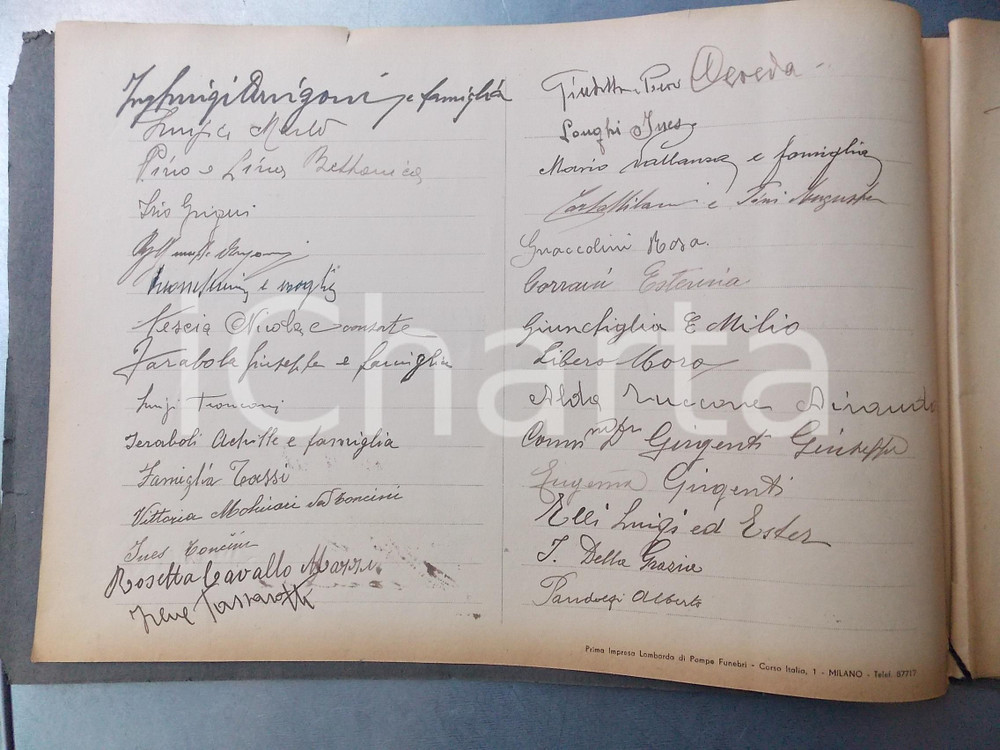 Ing Luigi Arrigoni e famiglia
Luigia Merlo
Pino e Lina Bethonica
Irio Grigni
e moglie
Fescia Nicola e consorte
Tarabola Giuseppe e famiglia
Luigi Tronconi
Jeraboli Achille e famiglia
Famiglia Tozzi
Vittoria Molinari Toncini
Ines Toncini
Rosetta Cavallo Mazzi
Irene Tassarotti
Giuditta e Piero Oereda
Longhi Ines
Mario Vallanza e famiglia
Carla Milani e Pini Augusta
Guaccolini Rosa.
Corraini Esterina
Giunchiglia E Milio
Libero Moro
Alda Muccone Airaudi
Comm Dr Girgenti Giuseppe
Eugenia Girgenti
Elli Luigi ed Ester
I. Della Grazia
Pandolfi Alberto
Prima Impresa Lombarda di Pompe Funebri - Corso Italia, 1 - MILANO - Telef. 87717
iCharta